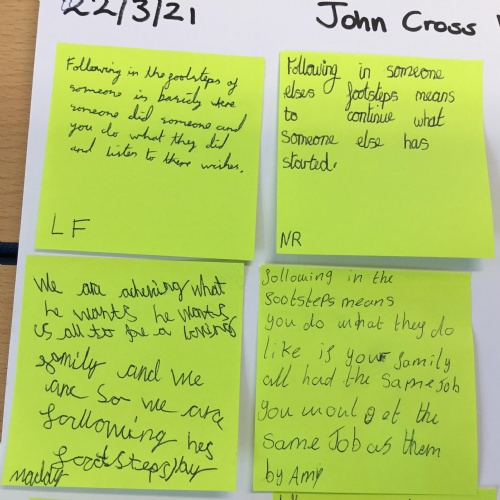 22/3/21
John Cross
Following in the footsteps of
someone is basicly were
someone did someone and
you do what they did
and listen to there wishes.
LF
Following in someone
elses footsteps means
to continue what
someone else has
started.
NR
We are achening what
he wants he wants
us all to be a loving
family and we
are so we are
following his
footsteps by
maddy
following in the
footsteps means
you do what they do
like if your family
all had the same job
you would get the
same Job as them
by Amy